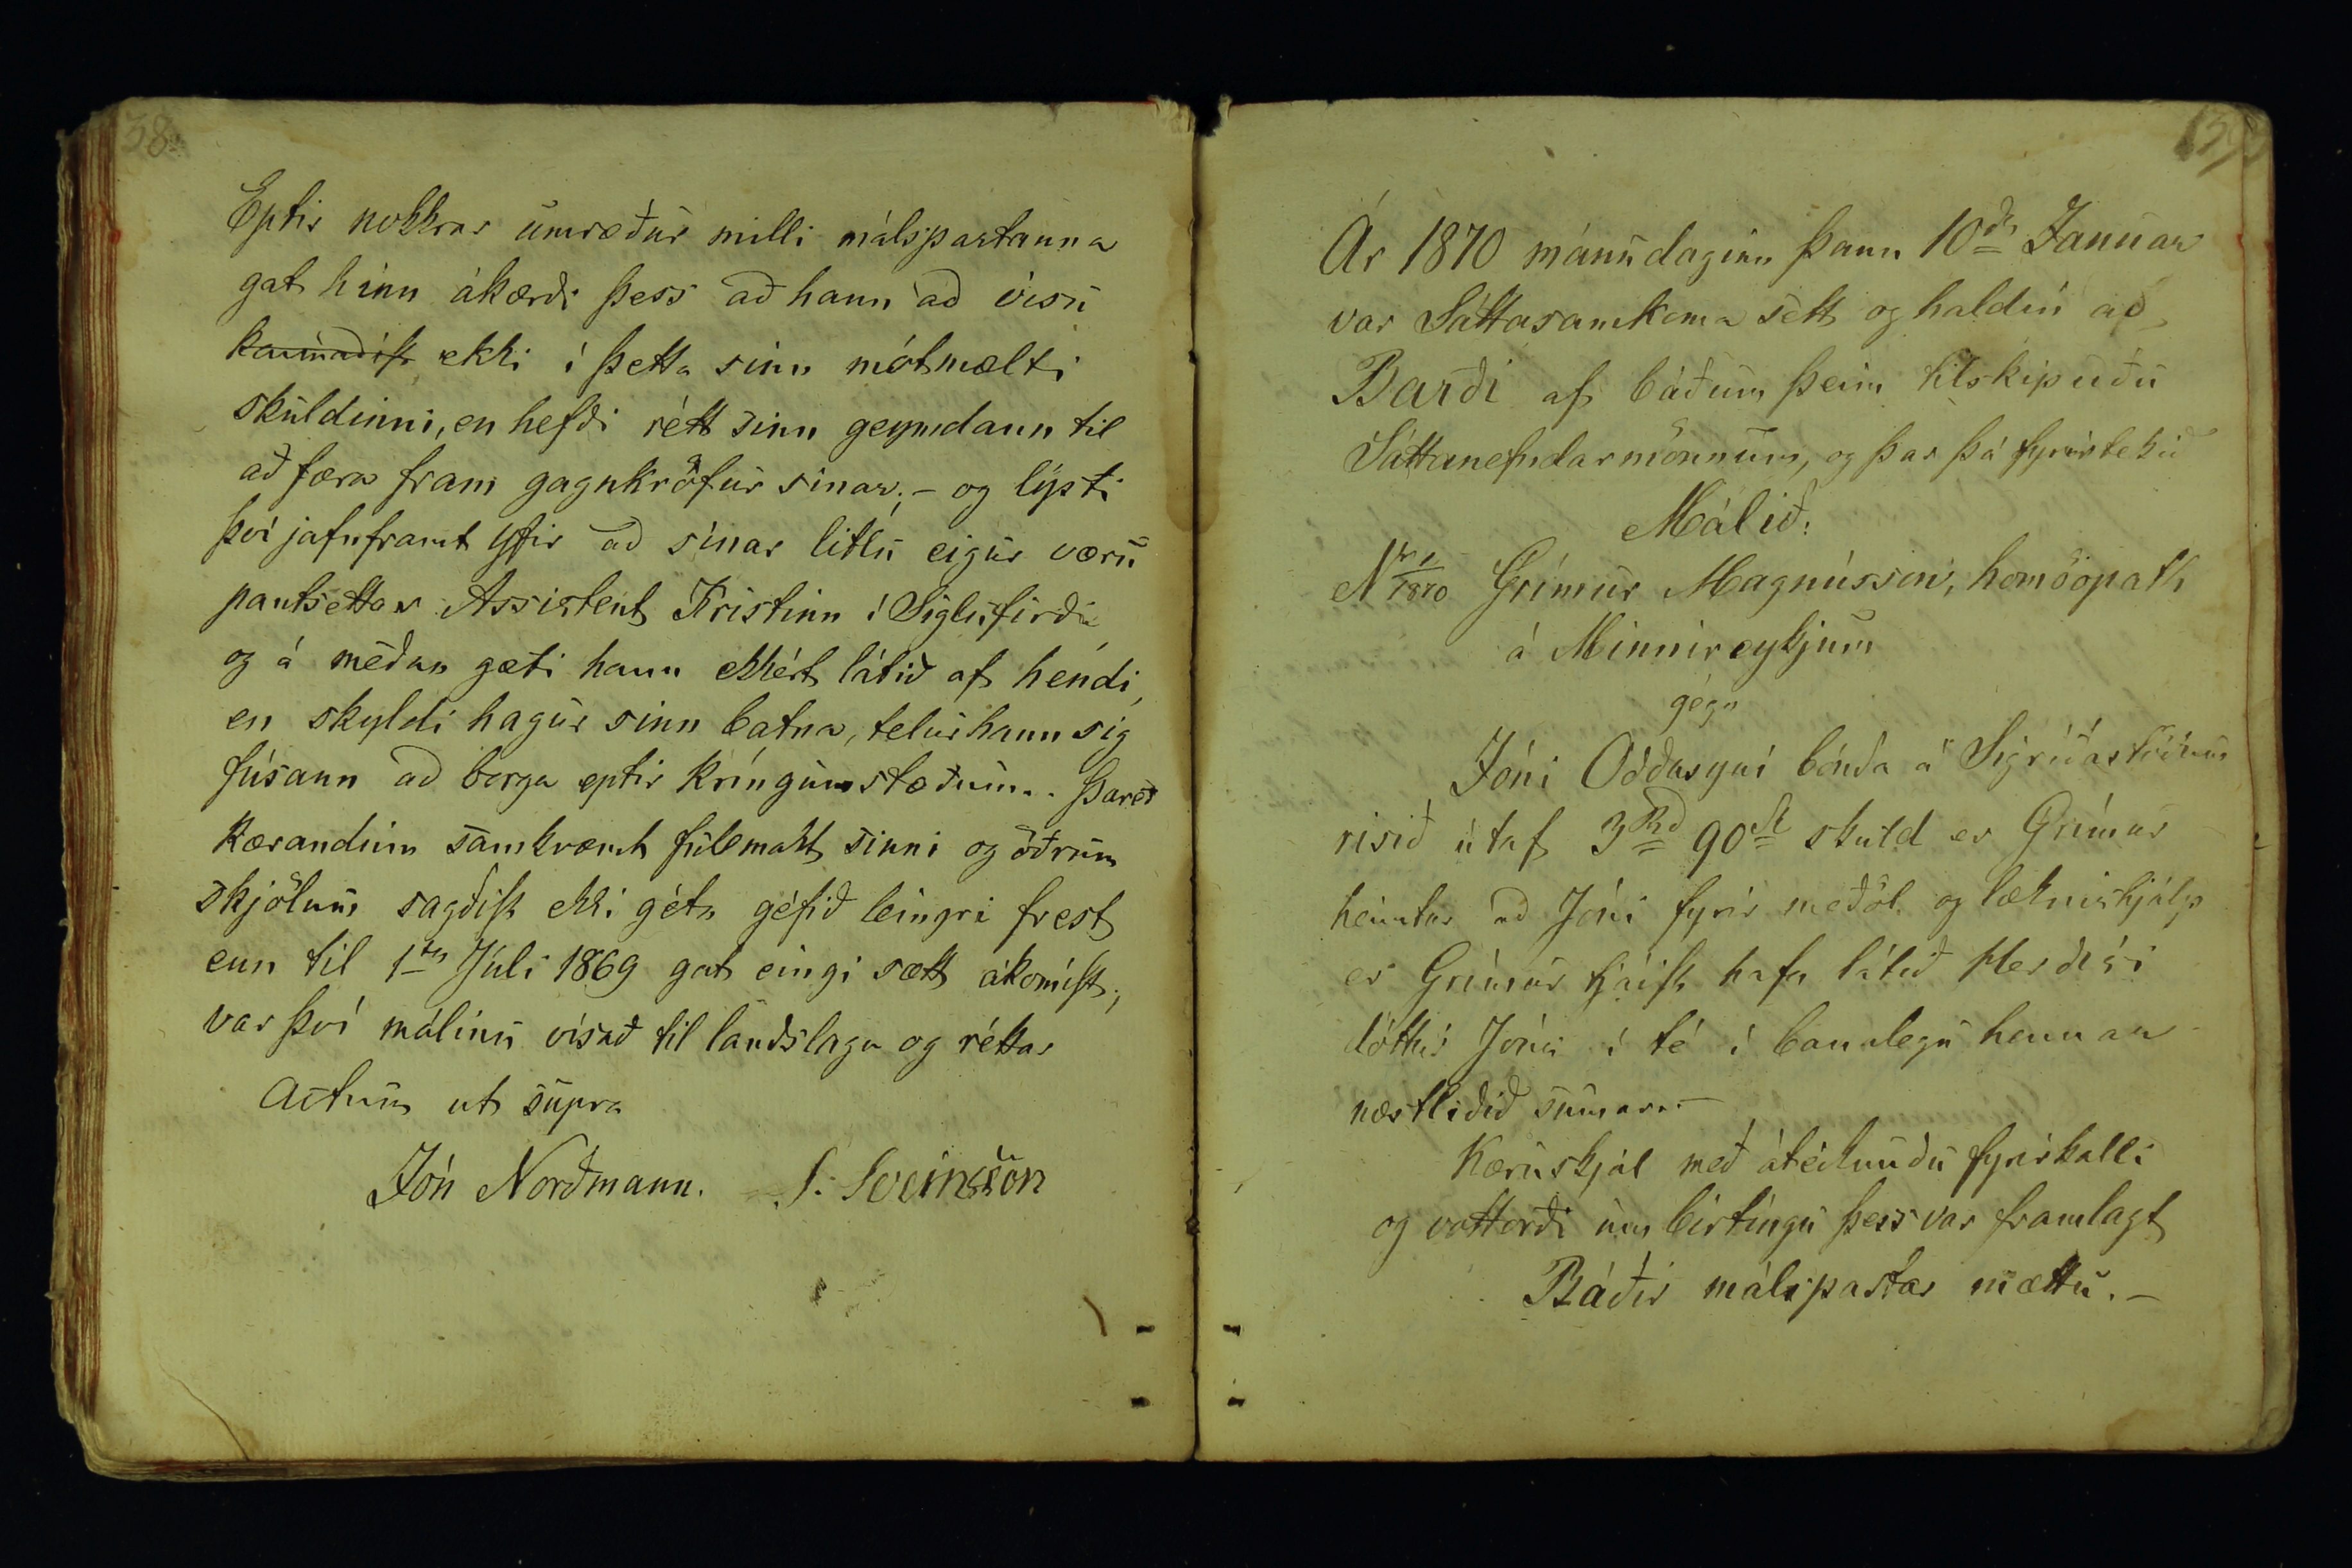 38
Eptir nokkrar umræður milli málspartanna
gat hinn ákærði þess að hann að vísu
kannaðist ekki í þetta sinn mótmælti
skuldinni, en hefði rétt sinn geymdann til
að færa fram gagnkröfur sínar; - og lýsti
því jafnframt yfir að sínar litlu eigur væru
pantsettar Assistent Kristinn í Siglufirði
og á meðan gæti hann ekkért látið af hendi,
en skyldi hagur sinn batna, telur hann sig
fúsann að borga eptir kringumstæðum. Þareð
Kærandinn samkvæmt fúlmakt sinni og öðrum
skjölum sagðist ekki géta géfið leingri frest
enn til 1ta Júli 1869 gat eingi sætt ákomist;
var því málinu vísað til landslaga og réttar
Actum ut supra
Jón Norðmann. S. Sveinsson
139
Ár 1870 mánudaginn þann 10da Januar
var Sáttasamkoma sett og haldin að
Barði af báðum þeim tilskipuðu
Sáttanefndarmönnum, og þar þá fyrirtekið
Málið:
Nr 1/1870 Grímur Magnússon, homöopath
á Minnireykjum
gégn
Jóni Oddssyni bónda á Sigríðarstöðum
risið útaf 3 Rd 90 sk skuld er Grímur
heimtar að Jóni fyrir meðöl og læknishjálp
er Grímur tjáist hafa látið Herdísi
dóttur Jóns í té í banalegu hennar
næstliðið sumar. -
Kæruskjal með áteiknuðu fyrirkalli
og vottorði um birtingu þess var framlagt
Báðir málspartar mættu. -